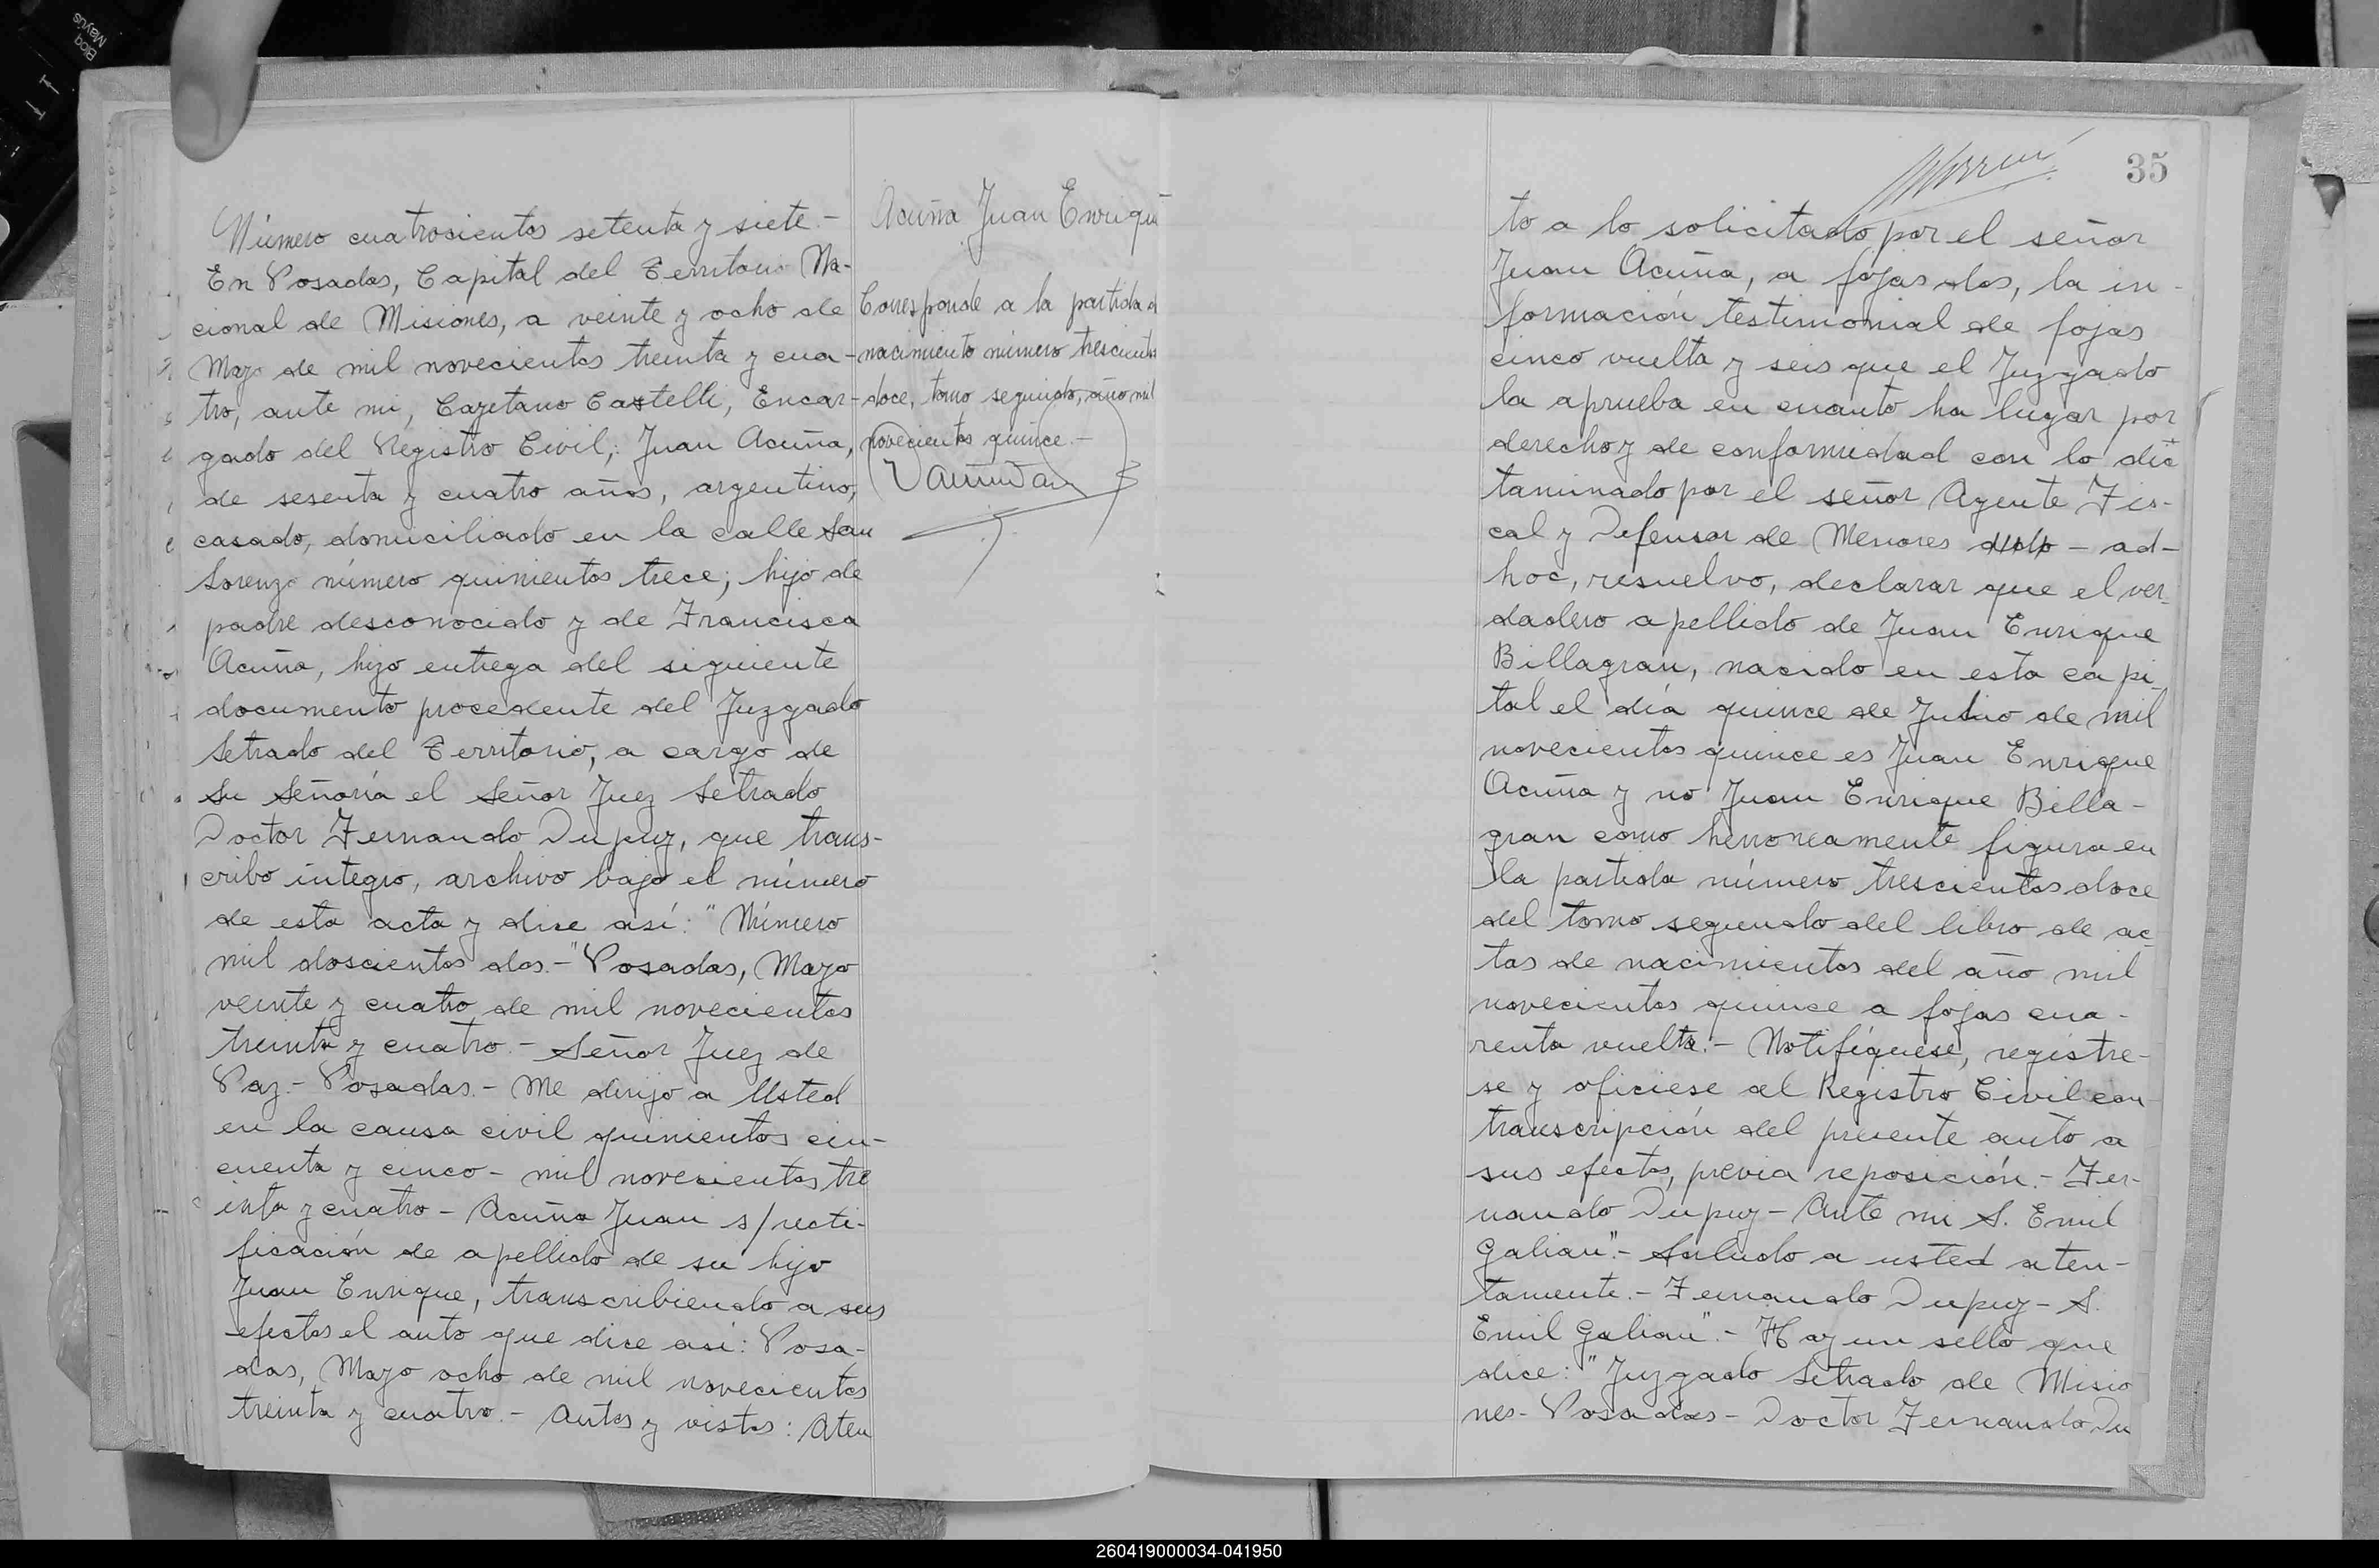 Número cuatrocientos setenta y siete.-
En Posadas, Capital del Territorio Na-
cional de Misiones, a veinte y ocho de
Mayo de mil novecientos treinta y cua-
tro, ante mi, Cayetano Castelli, Encar-
gado del Registro Civil; Juan Acuña,
de sesenta y cuatro años, argentino,
casado, domiciliado en la calle San
Lorenzo número quinientos trece; hijo de
padre desconocido y de Francisca
Acuña, hizo entrega del siguiente
documento procedente del Juzgado
Letrado del Territorio, a cargo de
Su Señoría el Señor Juez Letrado
Doctor Fernando Dupuy, que trans-
cribo integro, archivo bajo el número
de esta acta y dice así: "Número
mil doscientos dos.-" Posadas, Mayo
veinte y cuatro de mil novecientos
treinta y cuatro.- Señor Juez de
Paz.- Posadas.- Me dirijo a Usted
en la causa civil quinientos cin-
cuenta y cinco - mil novecientos tre
inta y cuatro - Acuña Juan s/recti-
ficación de apellido de su hijo
Juan Enrique, transcribiendo a sus
efectos el auto que dice así: Posa-
das, Mayo ocho de mil novecientos
treinta y cuatro.- Autos y vistos: Aten
Acuña Juan Enrique
Corresponde a la partida d
nacimiento número trescientos
doce, tomo segundo, año mil
novecientos quince.-
35
to a lo solicitado por el señor
Juan Acuña, a fojas dos, la in-
formación testimonial de fojas
cinco vuelta y seis que el Juzgado
la aprueba en cuanto ha lugar por
derecho y de conformidad con lo dic
taminado por el señor Agente Fis-
cal y Defensor de Menores - ad-
hoc, resuelvo, declarar que el ver-
dadero apellido de Juan Enrique
Billagran, nacido en esta capi-
tal el día quince de Julio de mil
novecientos quince es Juan Enrique
Acuña y no Juan Enrique Billa-
gran como herroneamente figura en
la partida número trescientos doce
del tomo segundo del libro de ac
tas de nacimientos del año mil
novecientos quince a fojas cua-
renta vuelta.- Notifíquese, registre-
se y oficiese al Registro Civil con
transcripción del presente auto a
sus efectos, previa reposición.- Fer-
nando Dupuy - Ante mi S. Emil
Galian".- Saludo a usted aten-
tamente.- Fernando Dupuy - S.
Emil Galian".- Hay un sello que
dice: "Juzgado Letrado de Misio
nes- Posadas- Doctor Fernando Du
260419000034-041950